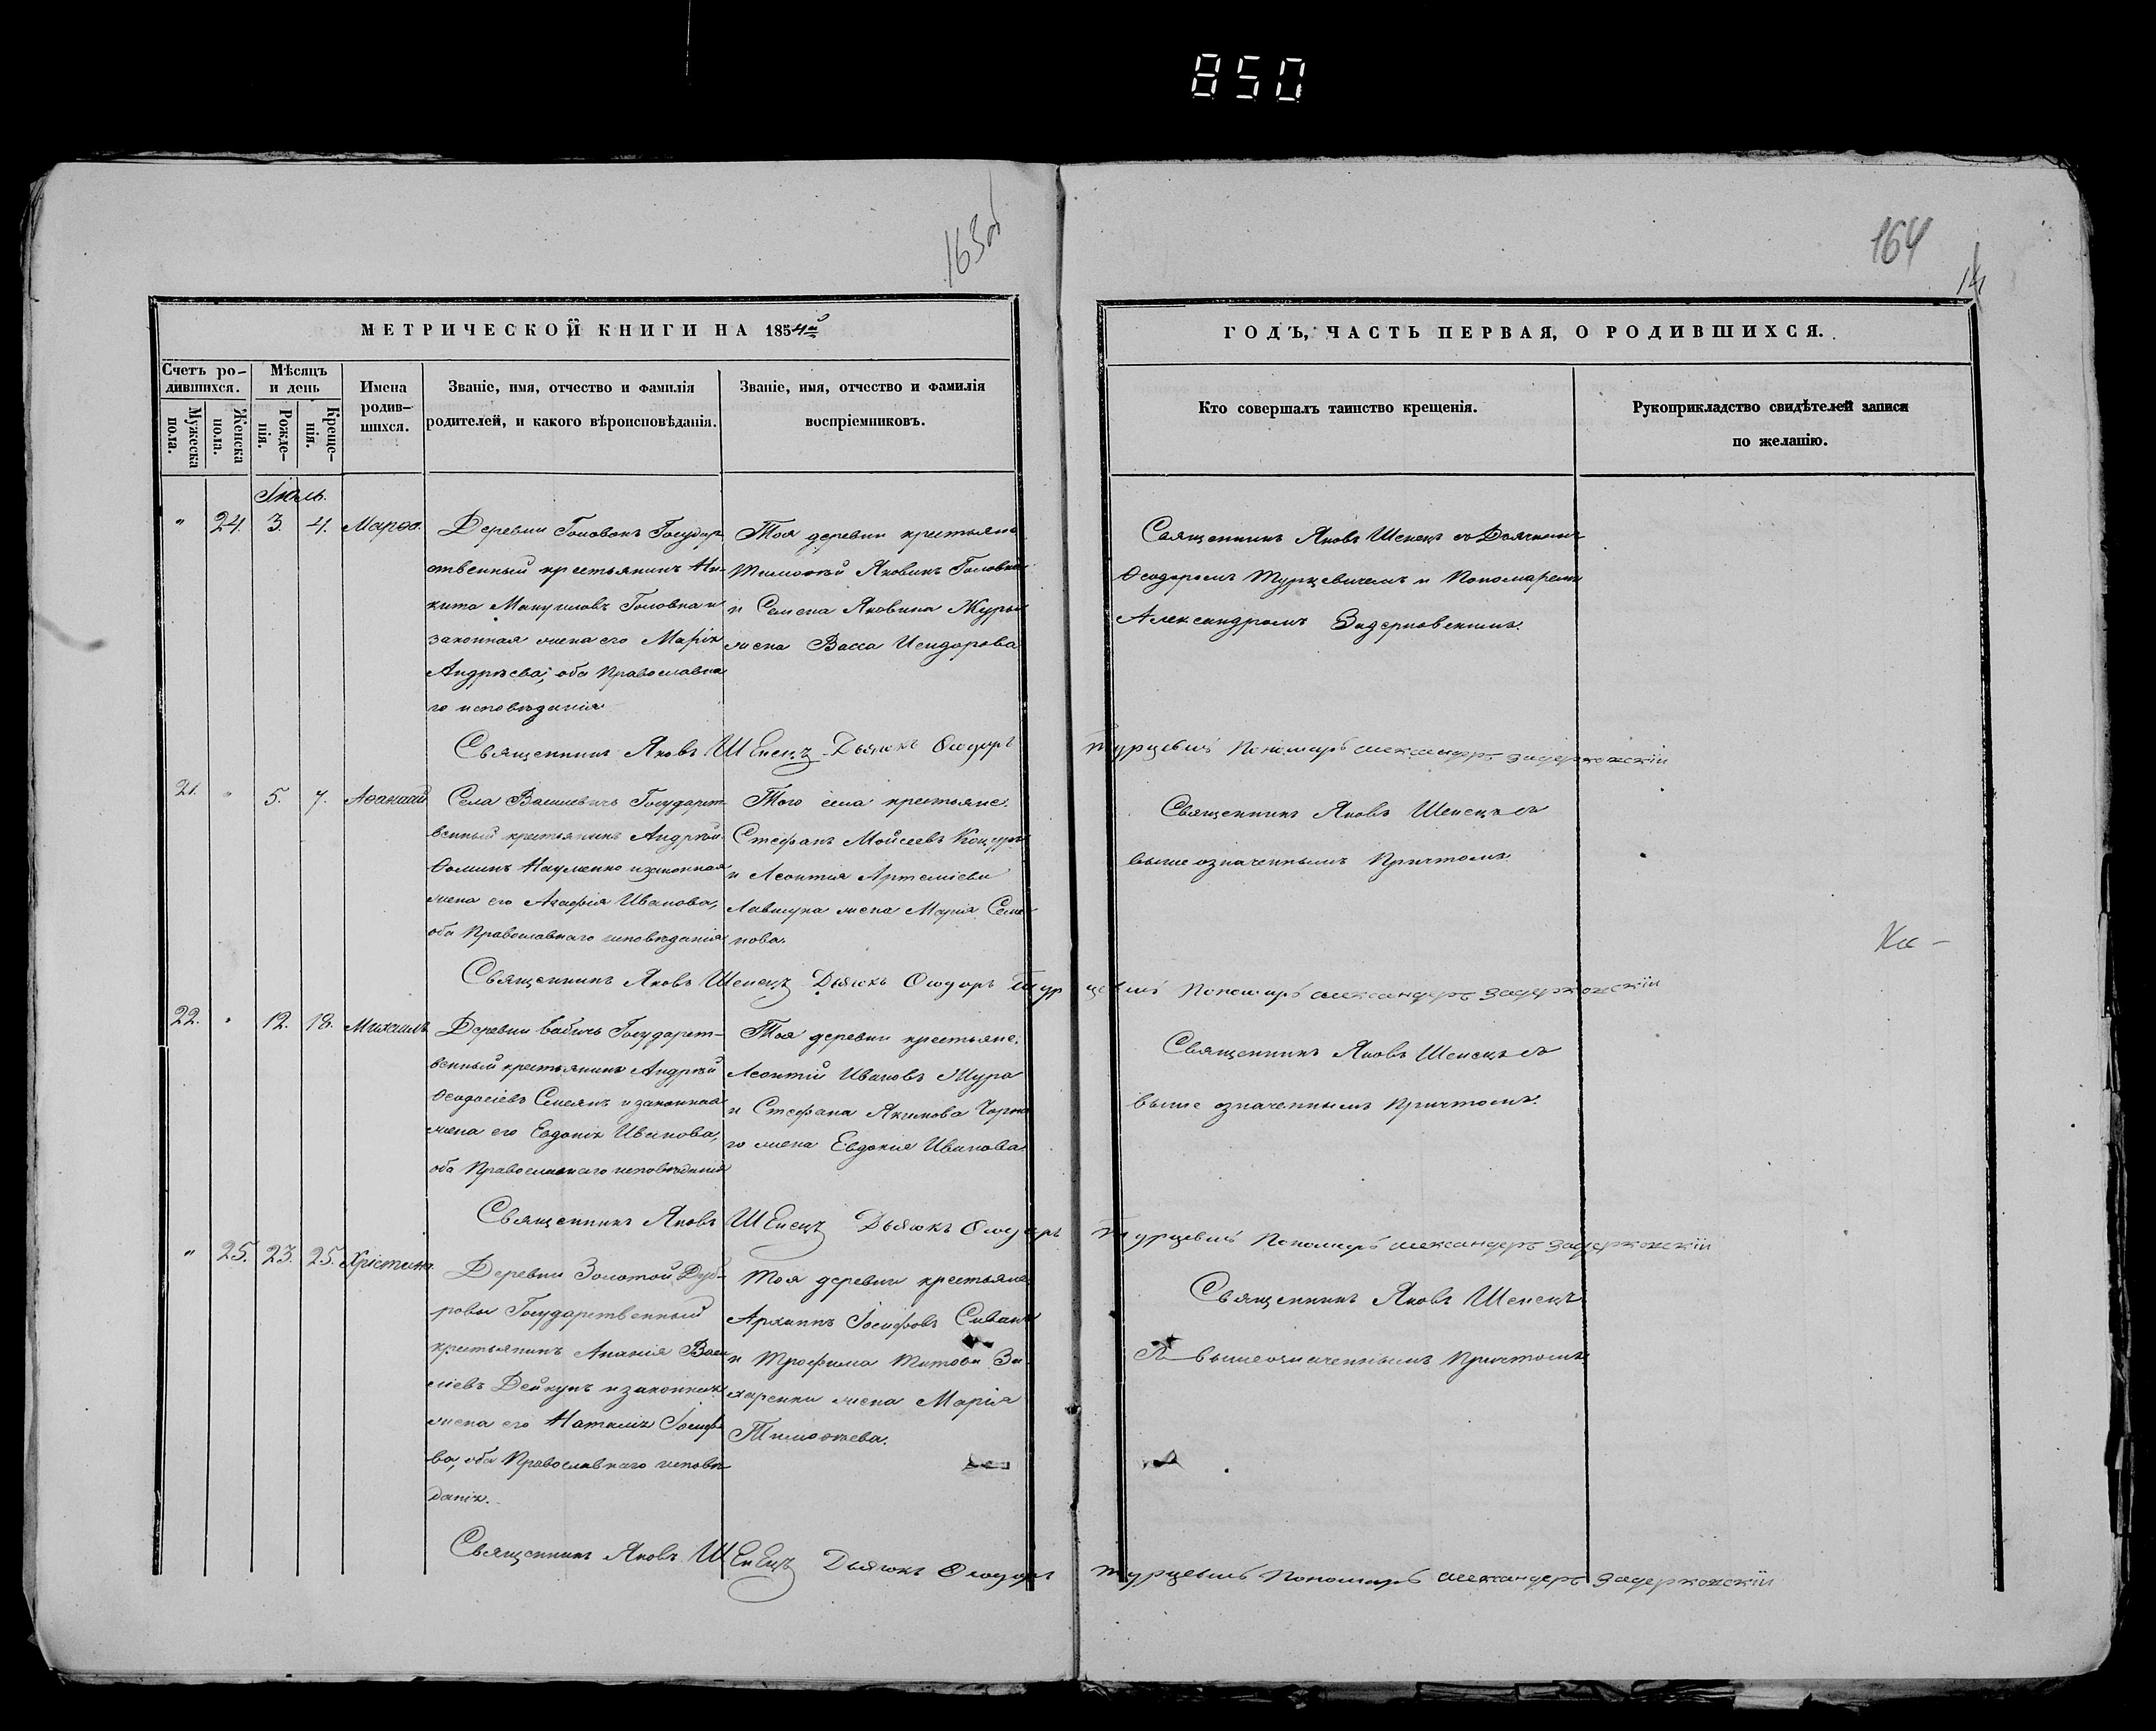 850
163об
164
14
МЕТРИЧЕСКОЙ КНИГИ НА 1854й
ГОДЪ, ЧАСТЬ ПЕРВАЯ, О РОДИВШИХСЯ.
Счетъ ро-
дившихся.
Мужеска
пола.
Женска
пола.
Мѣсяцъ
и день
Рожде-
нія.
Креще-
нія.
Имена
родив-
шихся.
Званіе, имя, отчество и фамилія
родителей, и какого вѣроисповѣданія.
Званіе, имя, отчество и фамилія
воспріемниковъ.
Кто совершалъ таинство крещенія.
Рукоприкладство свидѣтелей записи
по желанію.
Іюль.
" 24. 3. 4. Марѳа.
Деревни Головокъ Государ
ственный крестьянинъ Ни-
кита Мануиловъ Головка и
законная жена его Марія
Андреева, оба Православна
го исповѣданія
Тоя деревни крестьяне
Тимоѳей Яковинъ Головка
и Семена Яковина Журы
жена Васса Исидорова
Священникъ Яковъ Шенецъ съ Дьячкомъ
Ѳеодоромъ Турцевичемъ и Пономаремъ
Александромъ Задерковскимъ.
Священникъ Яковъ Шенецъ Дьячокъ Ѳеодоръ Турцевичъ Пономарь Александеръ Задерковскій
21. " 5. 7. Аѳанасій
Села Василевичъ Государст-
венный крестьянинъ Андрей
Ѳоминъ Науменко и законная
жена его Агафія Иванова,
оба Православнаго исповѣданія
Того села крестьяне.
Стефанъ Мойсеевъ
и Леонтія Артеміева
Лавшука жена Марія Семе
нова.
Священникъ Яковъ Шенецъ съ
вышеозначеннымъ Причтомъ.
Ка -
Священникъ Яковъ Шенецъ Дьячокъ Ѳеодоръ Турцевичъ Пономарь Александеръ Задерковскій
22. " 12. 18. Михаилъ
Деревни Бабичъ Государст-
венный крестьянинъ Андрей
Ѳеодосіевъ и законная
жена его Евдокія Иванова,
оба Православнаго исповѣданія
Тоя деревни крестьяне.
Леонтій Ивановъ Жура
и Стефана Якимова Чорна
го жена Евдокія Иванова.
Священникъ Яковъ Шенецъ съ
выше означеннымъ Причтомъ.
Священникъ Яковъ Шенецъ Дьячокъ Ѳеодоръ Турцевичъ Пономарь Александеръ Задерковскій
" 25. 23. 25. Хрістина.
Деревни Золотой Дуб-
ровы Государственный
крестьянинъ Ананія Васи
ліевъ Дейкунъ и законная
жена его Наталія Іосифо
ва, оба Православнаго исповѣ
данія.
Тоя деревни крестьяне
Архипъ Іосифовъ Сивакъ
и Трофима Титова За
харенки жена Марія
Тимоѳеева.
Священникъ Яковъ Шенецъ
съ вышеозначеннымъ Причтомъ
Священникъ Яковъ Шенецъ Дьячокъ Ѳеодоръ Турцевичъ Пономарь Александеръ Задерковскій